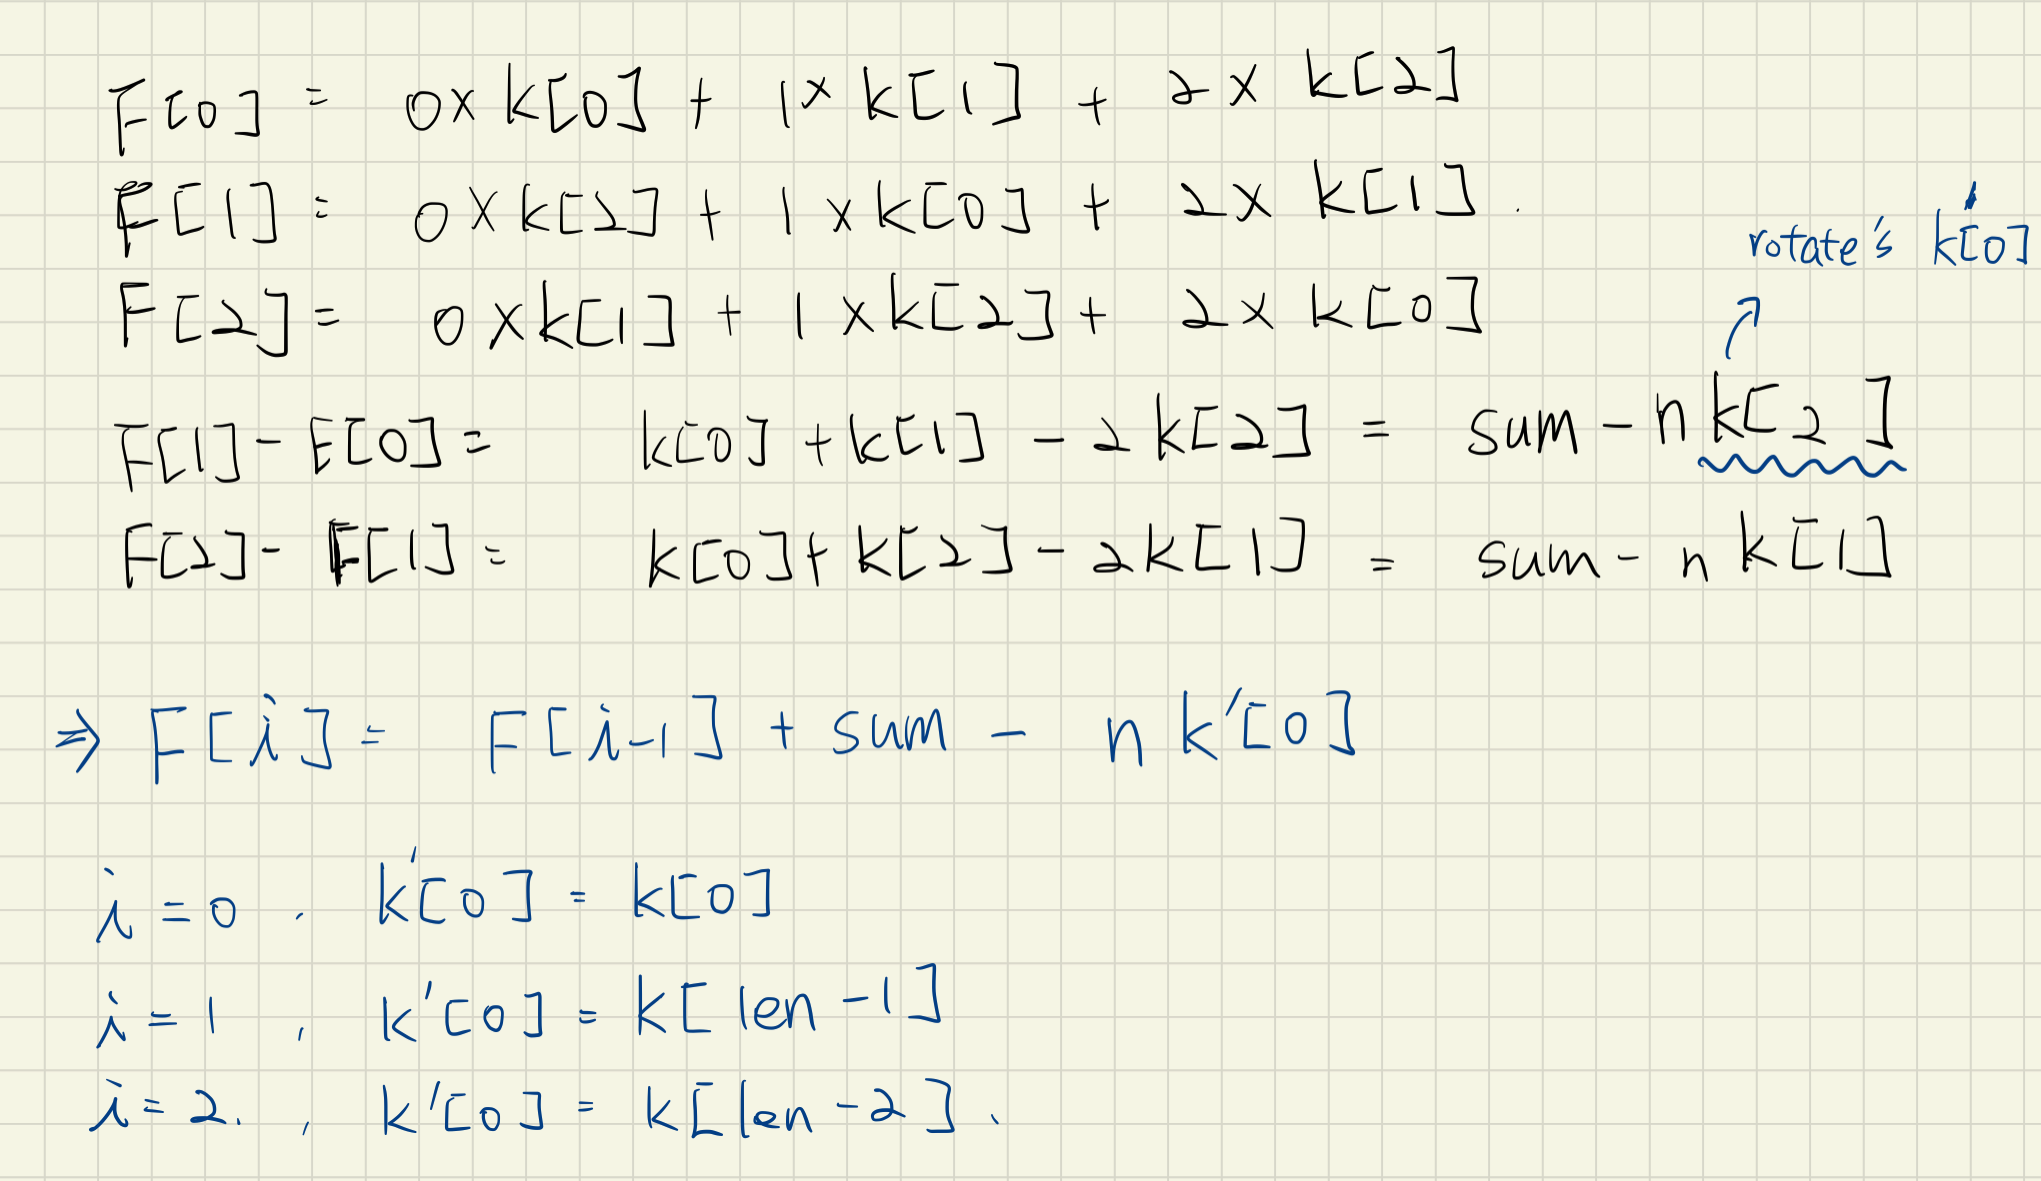 F[0] = 0× k[0] + 1× k[1] + 2 × k[2]
F[1] = 0 × k[2] + 1 × k[0] + 2 × k[1].
rotate's k[0]
F[2] = 0 × k[1] + 1 × k[2] + 2 × k[0]
F[1] - F[0] = k[0] + k[1] - 2 k[2] = sum - n k[2]
F[2] - F[1] = k[0] + k[2] - 2k[1] = sum - n k[1]
⇒ F[i] = F[i-1] + sum - n k'[0]
i = 0 , k'[0] = k[0]
i = 1 , k'[0] = k[len -1]
i = 2. , k'[0] = k[len -2].